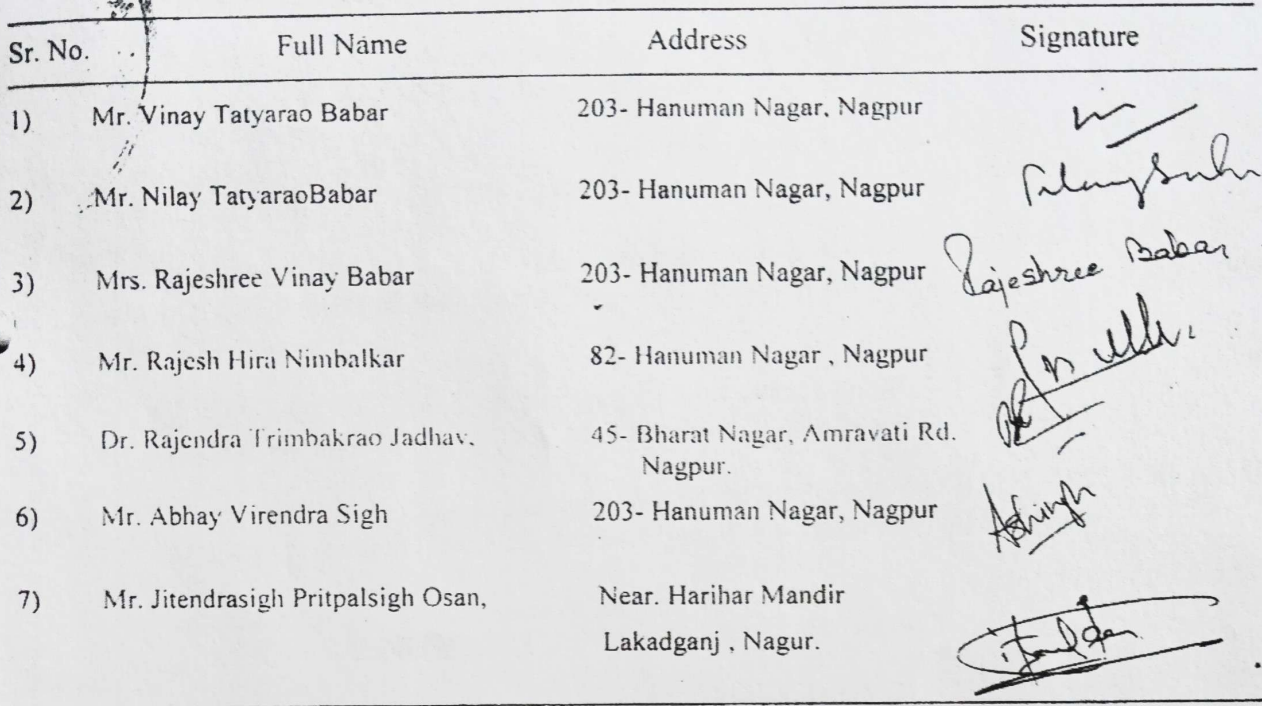 Sr. No. Full Name Address Signature
1) Mr. Vinay Tatyarao Babar 203- Hanuman Nagar, Nagpur
2) Mr. Nilay TatyaraoBabar 203- Hanuman Nagar, Nagpur
3) Mrs. Rajeshree Vinay Babar 203- Hanuman Nagar, Nagpur Rajeshree Babar
4) Mr. Rajesh Hira Nimbalkar 82- Hanuman Nagar , Nagpur
5) Dr. Rajendra Trimbakrao Jadhav. 45- Bharat Nagar, Amravati Rd.
Nagpur.
6) Mr. Abhay Virendra Sigh 203- Hanuman Nagar, Nagpur
7) Mr. Jitendrasigh Pritpalsigh Osan, Near. Harihar Mandir
Lakadganj , Nagur.